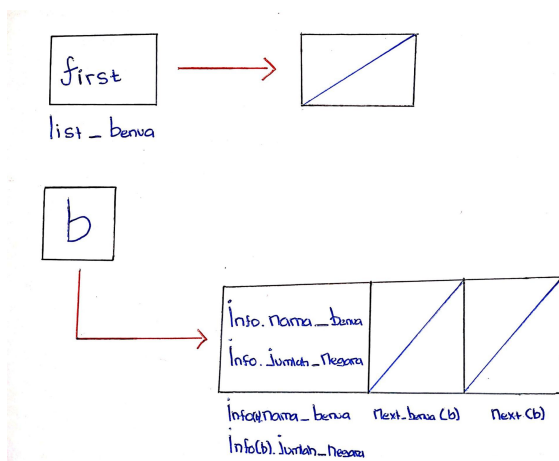 first
list_benua
b
Info.nama_benua
Info.jumlah_negara
info(b).nama_benua next_benua(b) next(b)
info(b).jumlah_negara